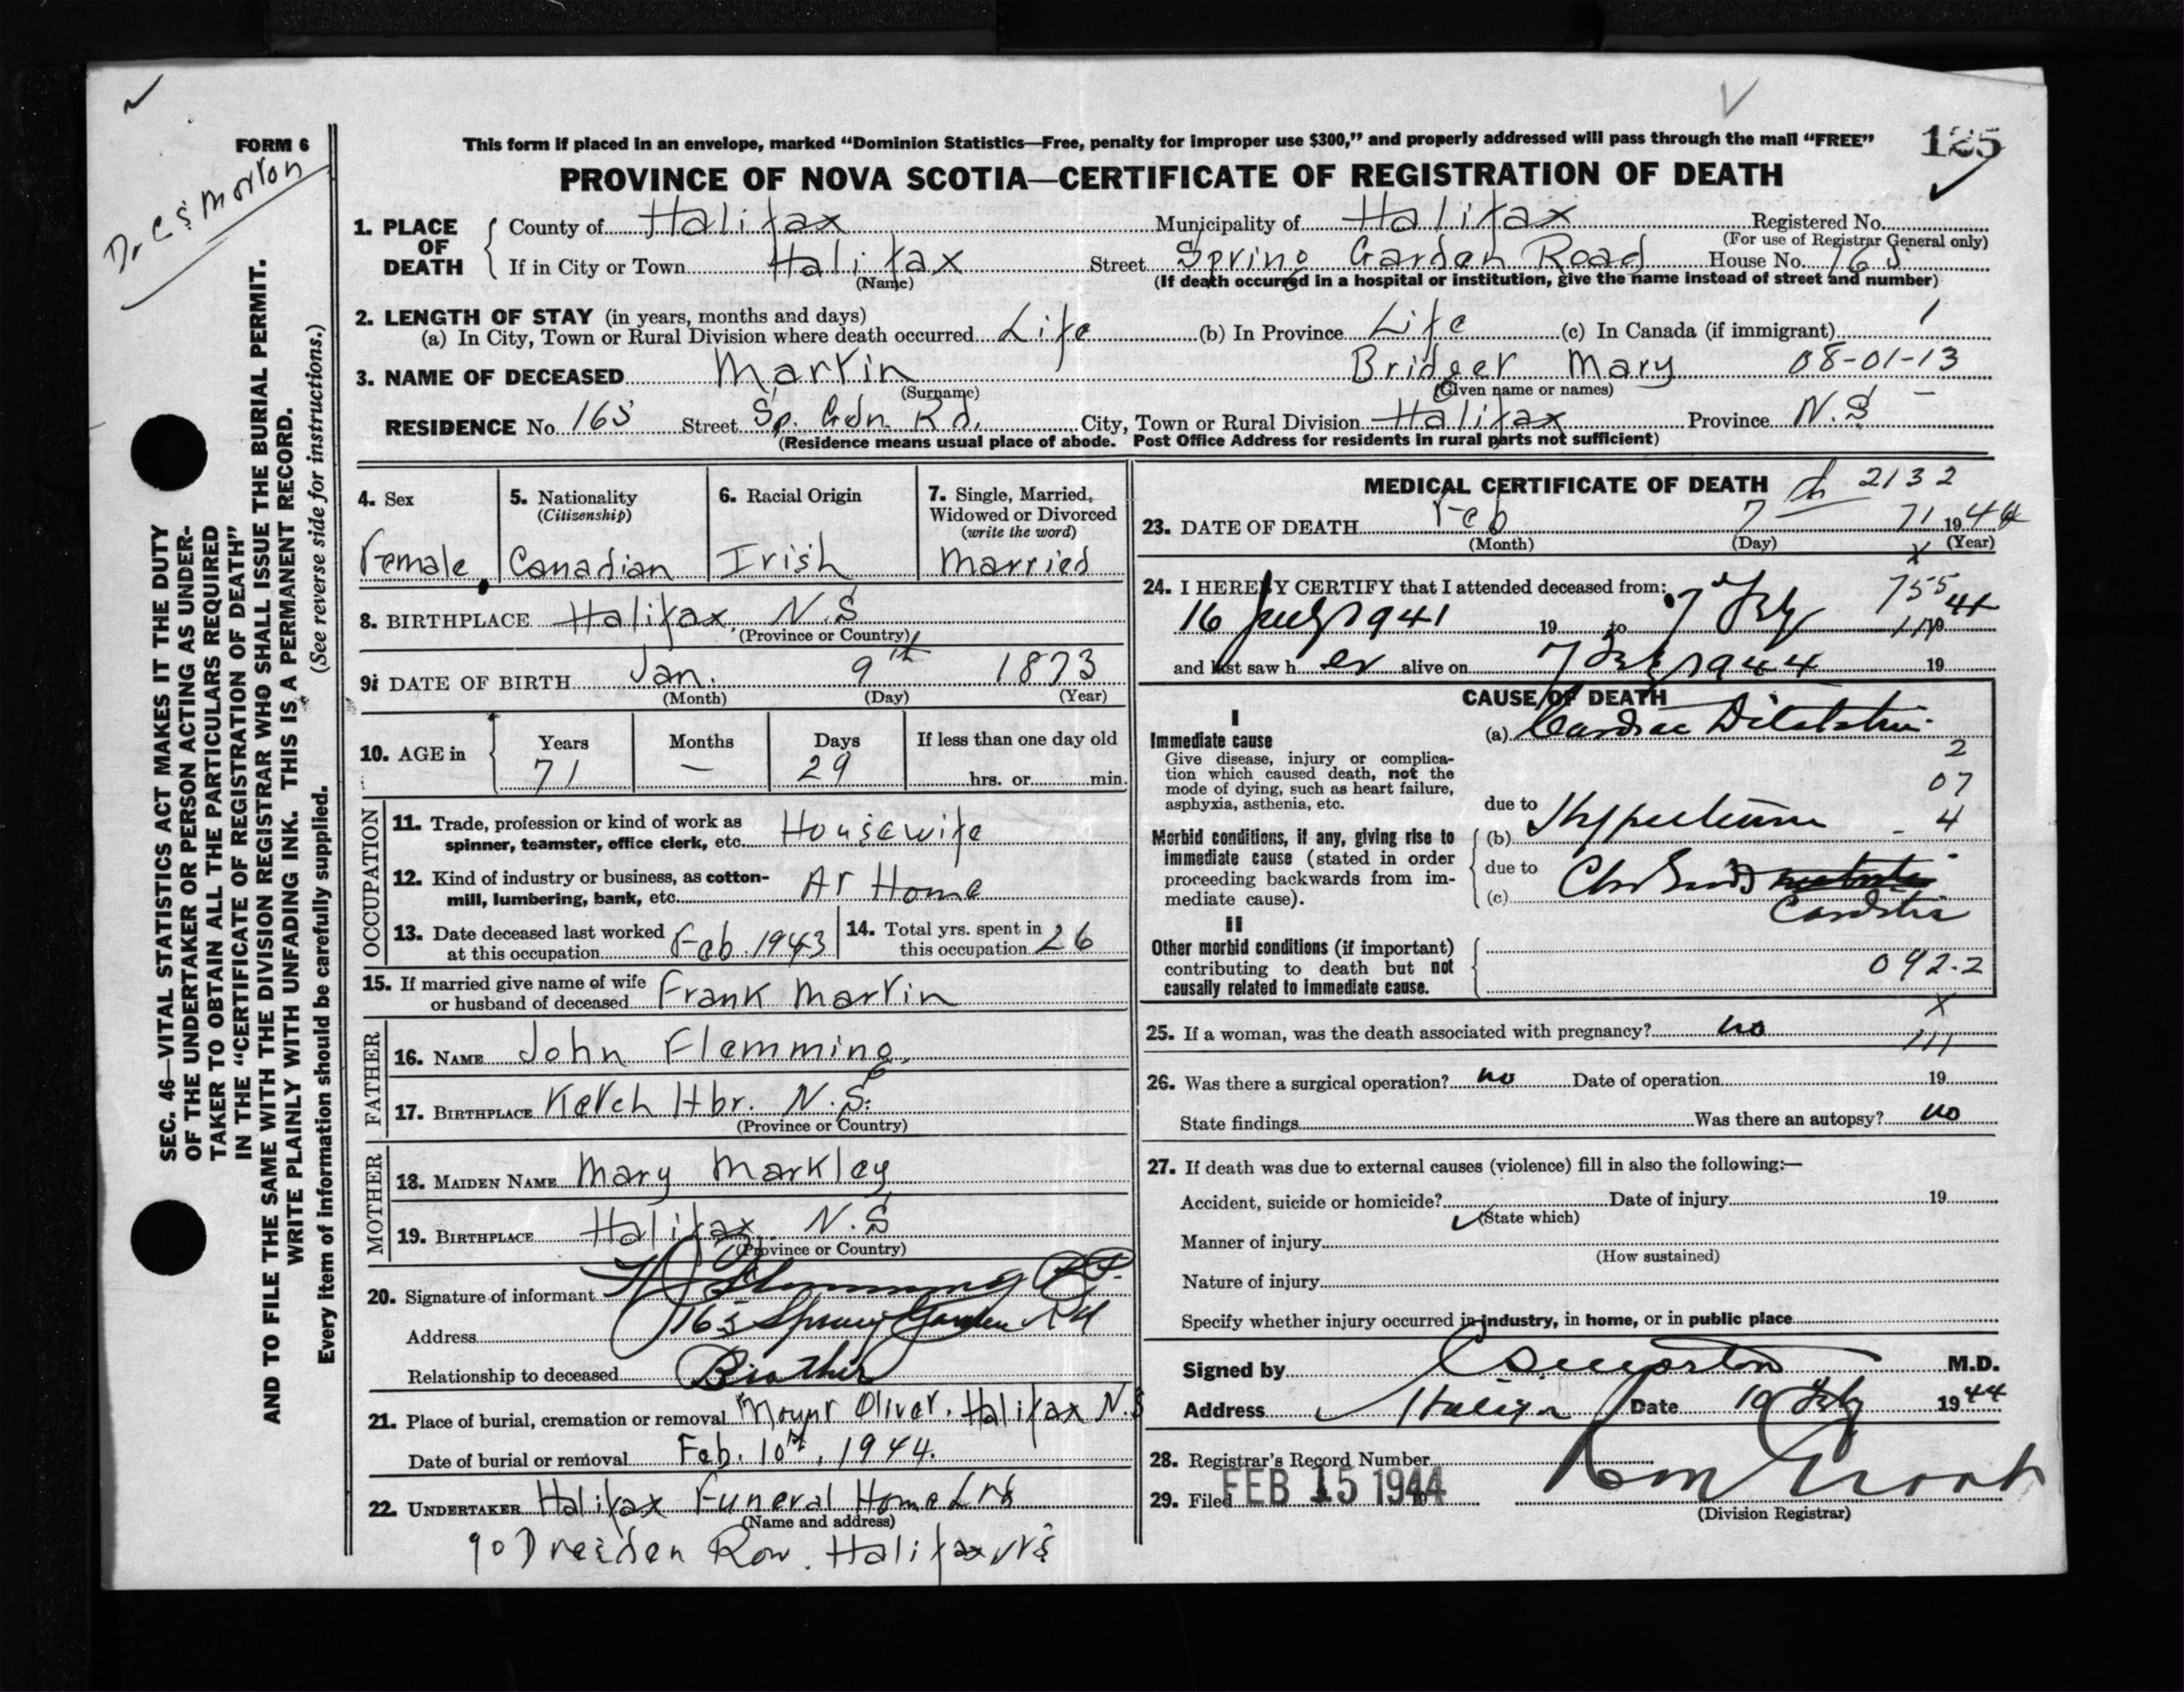 FORM 6
Dr C S Morton
This form if placed in an envelope, marked “Dominion Statistics—Free, penalty for improper use $300,” and properly addressed will pass through the mail “FREE”
125
PROVINCE OF NOVA SCOTIA—CERTIFICATE OF REGISTRATION OF DEATH
1. PLACE OF DEATH
County of Halifax Municipality of Halifax Registered No.
(For use of Registrar General only)
If in City or Town Halifax Street Spring Garden Road House No. 165
(Name) (If death occurred in a hospital or institution, give the name instead of street and number)
2. LENGTH OF STAY (in years, months and days)
(a) In City, Town or Rural Division where death occurred Life (b) In Province Life (c) In Canada (if immigrant) 1
3. NAME OF DECEASED Martin Bridget Mary 08-01-13
(Surname) (Given name or names)
RESIDENCE No. 165 Street Sp. Gdn. Rd. City, Town or Rural Division Halifax Province N.S
(Residence means usual place of abode. Post Office Address for residents in rural parts not sufficient)
4. Sex
Female
5. Nationality
(Citizenship)
Canadian
6. Racial Origin
Irish
7. Single, Married,
Widowed or Divorced
(write the word)
Married
8. BIRTHPLACE Halifax, N.S
(Province or Country)
9. DATE OF BIRTH Jan. 9th 1873
(Month) (Day) (Year)
10. AGE in
Years Months Days If less than one day old
71 — 29 hrs. or min.
OCCUPATION
11. Trade, profession or kind of work as
spinner, teamster, office clerk, etc. Housewife
12. Kind of industry or business, as cotton-
mill, lumbering, bank, etc. At Home
13. Date deceased last worked
at this occupation Feb. 1943
14. Total yrs. spent in
this occupation 26
15. If married give name of wife
or husband of deceased Frank Martin
FATHER
16. NAME John Flemming
17. BIRTHPLACE Ketch Hbr. N.S.
(Province or Country)
MOTHER
18. MAIDEN NAME Mary Markley
19. BIRTHPLACE Halifax N.S
(Province or Country)
20. Signature of informant Flemming P.P.
Address 165 Spring Garden Rd
Relationship to deceased Brother
21. Place of burial, cremation or removal Mount Olivet, Halifax N.S
Date of burial or removal Feb. 10th, 1944.
22. UNDERTAKER Halifax Funeral Home Ltd
(Name and address)
90 Dresden Row. Halifax NS
MEDICAL CERTIFICATE OF DEATH 2132
23. DATE OF DEATH Feb 7 71 1944
(Month) (Day) (Year)
24. I HEREBY CERTIFY that I attended deceased from:
16 July 1941 19 to 7 Feb 44
755
and last saw her alive on 7 Feb 1944 19
CAUSE OF DEATH
I
Immediate cause
Give disease, injury or complica-
tion which caused death, not the
mode of dying, such as heart failure,
asphyxia, asthenia, etc.
(a) Cardiac Dilatation
2
07
4
Morbid conditions, if any, giving rise to
immediate cause (stated in order
proceeding backwards from im-
mediate cause).
due to
(b)
due to
(c)
II
Other morbid conditions (if important)
contributing to death but not
causally related to immediate cause.
092.2
25. If a woman, was the death associated with pregnancy? no
111
26. Was there a surgical operation? no Date of operation 19
State findings Was there an autopsy? no
27. If death was due to external causes (violence) fill in also the following:—
Accident, suicide or homicide? Date of injury 19
(State which)
Manner of injury
(How sustained)
Nature of injury
Specify whether injury occurred in industry, in home, or in public place
Signed by C S Morton M.D.
Address Halifax Date 10 Feb 1944
28. Registrar's Record Number
29. Filed FEB 15 1944
(Division Registrar)
SEC. 46—VITAL STATISTICS ACT MAKES IT THE DUTY
OF THE UNDERTAKER OR PERSON ACTING AS UNDER-
TAKER TO OBTAIN ALL THE PARTICULARS REQUIRED
IN THE “CERTIFICATE OF REGISTRATION OF DEATH”
AND TO FILE THE SAME WITH THE DIVISION REGISTRAR WHO SHALL ISSUE THE BURIAL PERMIT.
WRITE PLAINLY WITH UNFADING INK. THIS IS A PERMANENT RECORD.
Every item of information should be carefully supplied. (See reverse side for instructions.)